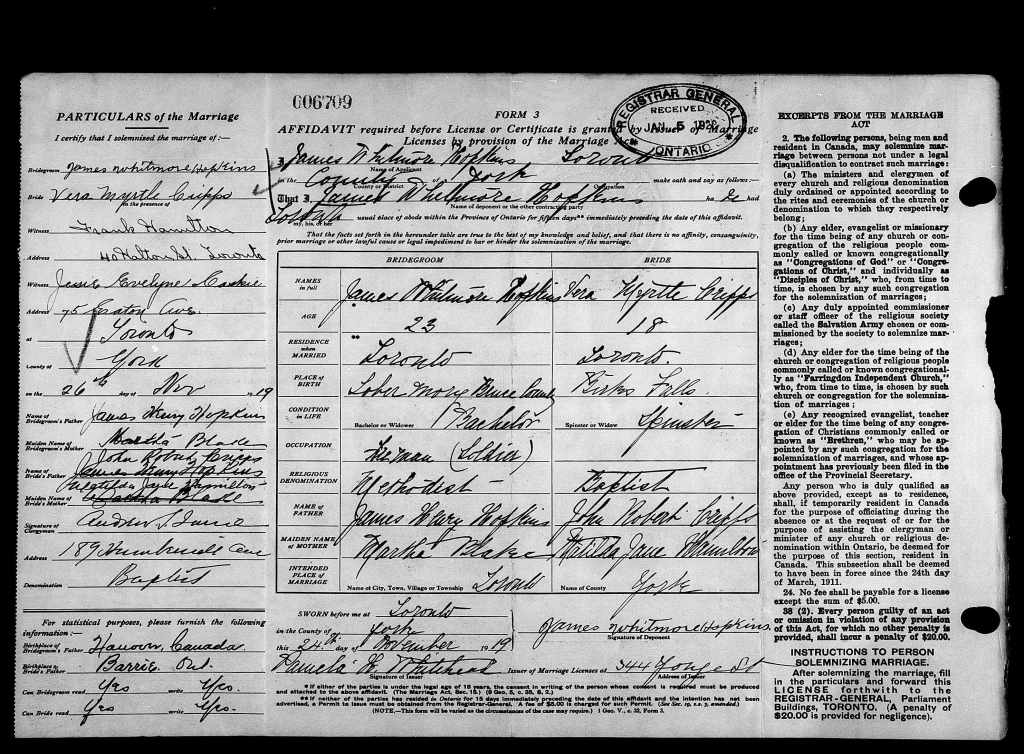 606709
PARTICULARS of the Marriage
I certify that I solemnized the marriage of:—
Bridegroom James Whitmore Hopkins
Bride Vera Myrtle Cripps
in the presence of
Witness Frank Hamilton
Address 40 Halton St. Toronto
Witness Jessie Evelyne
Address 75 Ave
at Toronto
County of York
on the 26th day of Nov 19
Name of Bridegroom's Father James Henry Hopkins
Maiden Name of Bridegroom's Mother Martha Blake
John Robert Cripps
Name of Bride's Father James Henry Hopkins
Matilda Jane Hamilton
Maiden Name of Bride's Mother Martha Blake
Signature of Clergyman Andrew
Address 189 Ave
Denomination Baptist
For statistical purposes, please furnish the following information:—
Birthplace of Bridegroom's Father Hanover, Canada
Birthplace of Bride's Father Barrie Ont.
Can Bridegroom read Yes write Yes.
Can Bride read Yes write Yes.
FORM 3
REGISTRAR GENERAL
RECEIVED
JAN 5
ONTARIO
AFFIDAVIT required before License or Certificate is granted by Issuer of Marriage
Licenses by provision of the Marriage Act
I James Whitmore Hopkins Toronto
Name of Applicant
in the County of York
County or District Occupation make oath and say as follows:—
That I, James Whitmore Hopkins ha
Name of deponent or the other contracting party
my, his, or her usual place of abode within the Province of Ontario for fifteen days** immediately preceding the date of this affidavit.
That the facts set forth in the hereunder table are true to the best of my knowledge and belief, and that there is no affinity, consanguinity,
prior marriage or other lawful cause or legal impediment to bar or hinder the solemnization of the marriage.
BRIDEGROOM BRIDE
NAMES in full James Whitmore Hopkins Vera Myrtle Cripps
AGE 23 18
RESIDENCE when MARRIED ** Toronto Toronto.
PLACE OF BIRTH Bruce County Burks Falls
CONDITION IN LIFE Bachelor or Widower Bachelor Spinster or Widow Spinster
OCCUPATION (Soldier)
RELIGIOUS DENOMINATION Methodist Baptist
NAME OF FATHER James Henry Hopkins John Robert Cripps
MAIDEN NAME OF MOTHER Martha Blake Matilda Jane Hamilton
INTENDED PLACE OF MARRIAGE Name of City, Town, Village or Township Toronto Name of County York
SWORN before me at Toronto
in the County of York
this 24th day of November 1919
James Whitmore Hopkins.
Signature of Deponent
Signature of Issuer
Issuer of Marriage Licenses at 344 Yonge St
Address of Issuer
* If either of the parties is under the legal age of 18 years, the consent in writing of the person whose consent is required must be produced
and attached to the above affidavit. (The Marriage Act, Sec. 15.) (9 Geo. 5, c. 35, S. 2.)
** If neither of the parties has resided in Ontario for 15 days immediately preceding the date of this affidavit and the intention has not been
advertised, a Permit to issue must be obtained from the Registrar-General. A fee of $5.00 is charged for such Permit. (See Sec. 19, s.s. 3, amended.)
(NOTE.—This form will be varied as the circumstances of the case may require.) 1 Geo. V., c. 32, Form 3.
EXCERPTS FROM THE MARRIAGE
ACT
2. The following persons, being men and
resident in Canada, may solemnize marriage
between persons not under a legal
disqualification to contract such marriage:
(a) The ministers and clergymen of
every church and religious denomination
duly ordained or appointed according to
the rites and ceremonies of the church or
denomination to which they respectively
belong;
(b) Any elder, evangelist or missionary
for the time being of any church or congregation
of the religious people commonly
called or known congregationally
as "Congregations of God" or "Congregations
of Christ," and individually as
"Disciples of Christ," who, from time to
time, is chosen by any such congregation
for the solemnization of marriages;
(c) Any duly appointed commissioner
or staff officer of the religious society
called the Salvation Army chosen or commissioned
by the society to solemnize marriages;
(d) Any elder for the time being of the
church or congregation of the religious people
commonly called or known congregationally
as "Farringdon Independent Church,"
who, from time to time, is chosen by such
church or congregation for the solemnization
of marriages;
(e) Any recognized evangelist, teacher
or elder for the time being of any congregation
of Christians commonly called or
known as "Brethren," who may be appointed
by any such congregation for the
solemnization of marriages, and whose appointment
has previously been filed in the
office of the Provincial Secretary.
Any person who is duly qualified as
above provided, except as to residence,
shall, if temporarily resident in Canada
for the purpose of officiating during the
absence or at the request of or for the
purpose of assisting the clergyman or
minister of any church or religious denomination
within Ontario, be deemed for
the purpose of this section, resident in
Canada. This subsection shall be deemed
to have been in force since the 24th day
of March, 1911.
24. No fee shall be payable for a license
except the sum of $5.00.
38 (2). Every person guilty of an act
or omission in violation of any provision
of this Act, for which no other penalty is
provided, shall incur a penalty of $20.00.
INSTRUCTIONS TO PERSON
SOLEMNIZING MARRIAGE.
After solemnizing the marriage, fill
in the particulars and forward this
LICENSE forthwith to the
REGISTRAR-GENERAL, Parliament
Buildings, TORONTO. (A penalty of
$20.00 is provided for negligence).